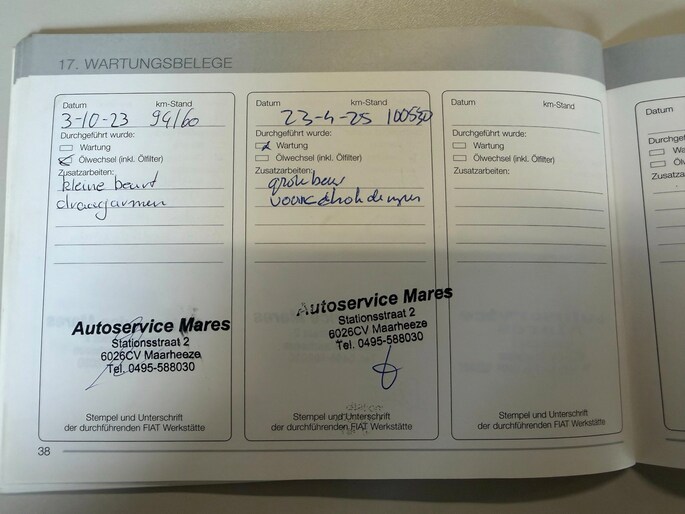 17. WARTUNGSBELEGE
Datum km-Stand
3-10-23 94160
Durchgeführt wurde:
Wartung
Ölwechsel (inkl. Ölfilter)
Zusatzarbeiten:
kleine beurt
draagarmen
Autoservice Mares
Stationsstraat 2
6026CV Maarheeze
Tel. 0495-588030
Stempel und Unterschrift
der durchführenden FIAT Werkstätte
Datum km-Stand
23-4-25 100530
Durchgeführt wurde:
Wartung
Ölwechsel (inkl. Ölfilter)
Zusatzarbeiten:
Autoservice Mares
Stationsstraat 2
6026CV Maarheeze
Tel. 0495-588030
Stempel und Unterschrift
der durchführenden FIAT Werkstätte
Datum km-Stand
Durchgeführt wurde:
Wartung
Ölwechsel (inkl. Ölfilter)
Zusatzarbeiten:
Stempel und Unterschrift
der durchführenden FIAT Werkstätte
38
Datum